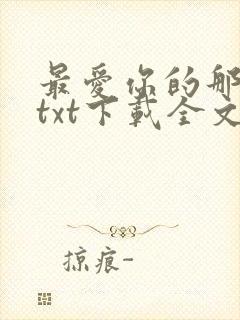 最爱你的那
txt下载全文
掠痕-